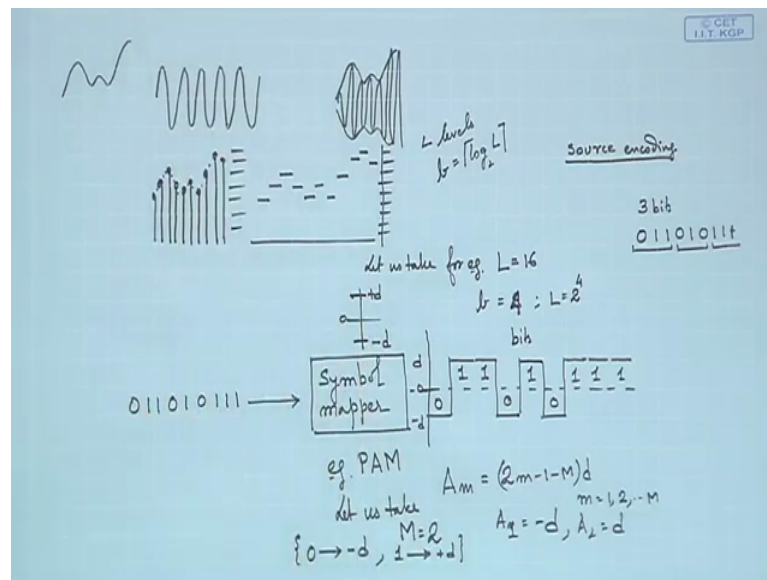 © CET
I.I.T. KGP
L levels
b = ⌈log₂ L⌉
Source encoding
3 bit
011010111
Let us take for eg. L = 16
b = 4 ; L = 2⁴
bit
+d
0
-d
011010111
Symbol
mapper
d
0
-d
0 1 1 0 1 0 1 1 1
eg. PAM
Am = (2m-1-M)d
m = 1, 2, .. M
Let us take
M = 2
A1 = -d, A2 = d
{0 → -d, 1 → +d}